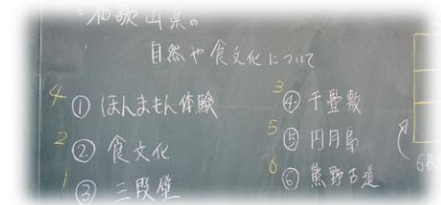 和歌山県の
自然や食文化について
4 ① ほんまもん体験
2 ② 食文化
1 ③ 三段壁
3 ④ 千畳敷
5 ⑤ 円月島
6 ⑥ 熊野古道